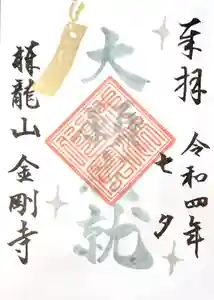 奉拝 令和四年
七夕
大願成就
龍山 金剛寺